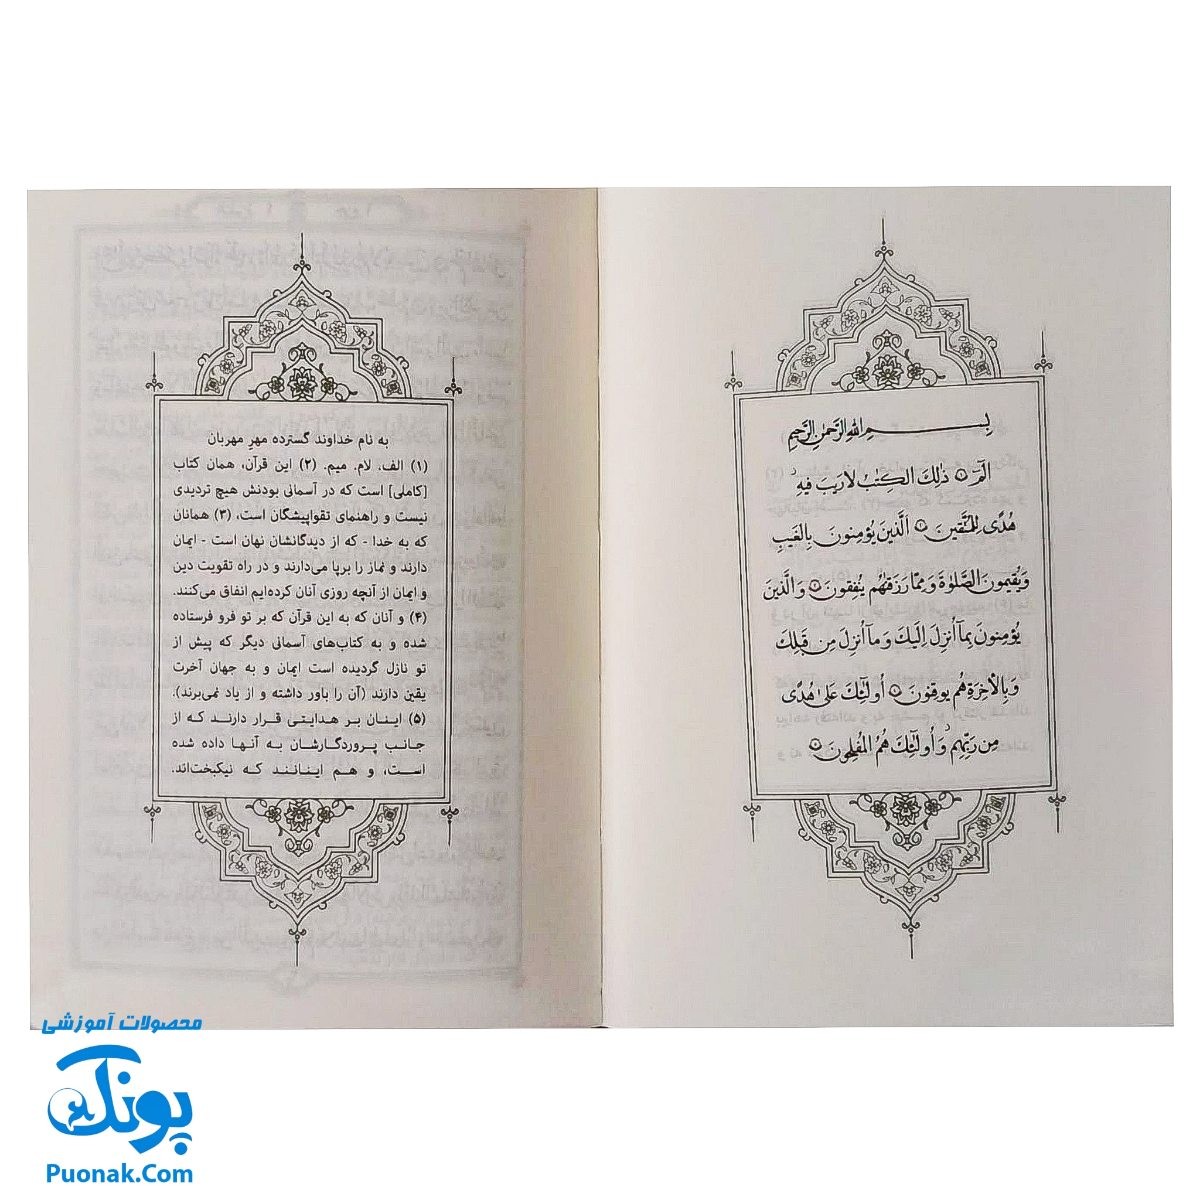 بِسْمِ اللهِ الرَّحْمٰنِ الرَّحِيمِ
الٓمٓ ۝ ذٰلِكَ الْكِتٰبُ لَا رَيْبَ فِيهِ
هُدًى لِلْمُتَّقِينَ ۝ الَّذِينَ يُؤْمِنُونَ بِالْغَيْبِ
وَيُقِيمُونَ الصَّلٰوةَ وَمِمَّا رَزَقْنٰهُمْ يُنْفِقُونَ ۝ وَالَّذِينَ
يُؤْمِنُونَ بِمَا أُنْزِلَ إِلَيْكَ وَمَا أُنْزِلَ مِنْ قَبْلِكَ
وَبِالْاٰخِرَةِ هُمْ يُوقِنُونَ ۝ أُولٰئِكَ عَلٰى هُدًى
مِنْ رَبِّهِمْ وَأُولٰئِكَ هُمُ الْمُفْلِحُونَ ۝
به نام خداوند گسترده مهرِ مهربان
(۱) الف. لام. میم. (۲) این قرآن، همان کتاب
[کاملی] است که در آسمانی بودنش هیچ تردیدی
نیست و راهنمای تقواپیشگان است، (۳) همانان
که به خدا - که از دیدگانشان نهان است - ایمان
دارند و نماز را برپا می‌دارند و در راه تقویت دین
و ایمان از آنچه روزی آنان کرده‌ایم انفاق می‌کنند.
(۴) و آنان که به این قرآن که بر تو فرو فرستاده
شده و به کتاب‌های آسمانی دیگر که پیش از
تو نازل گردیده است ایمان و به جهان آخرت
یقین دارند (آن را باور داشته و از یاد نمی‌برند).
(۵) اینان بر هدایتی قرار دارند که از
جانب پروردگارشان به آنها داده شده
است، و هم اینانند که نیکبخت‌اند.
محصولات آموزشی
پونک
Puonak.Com